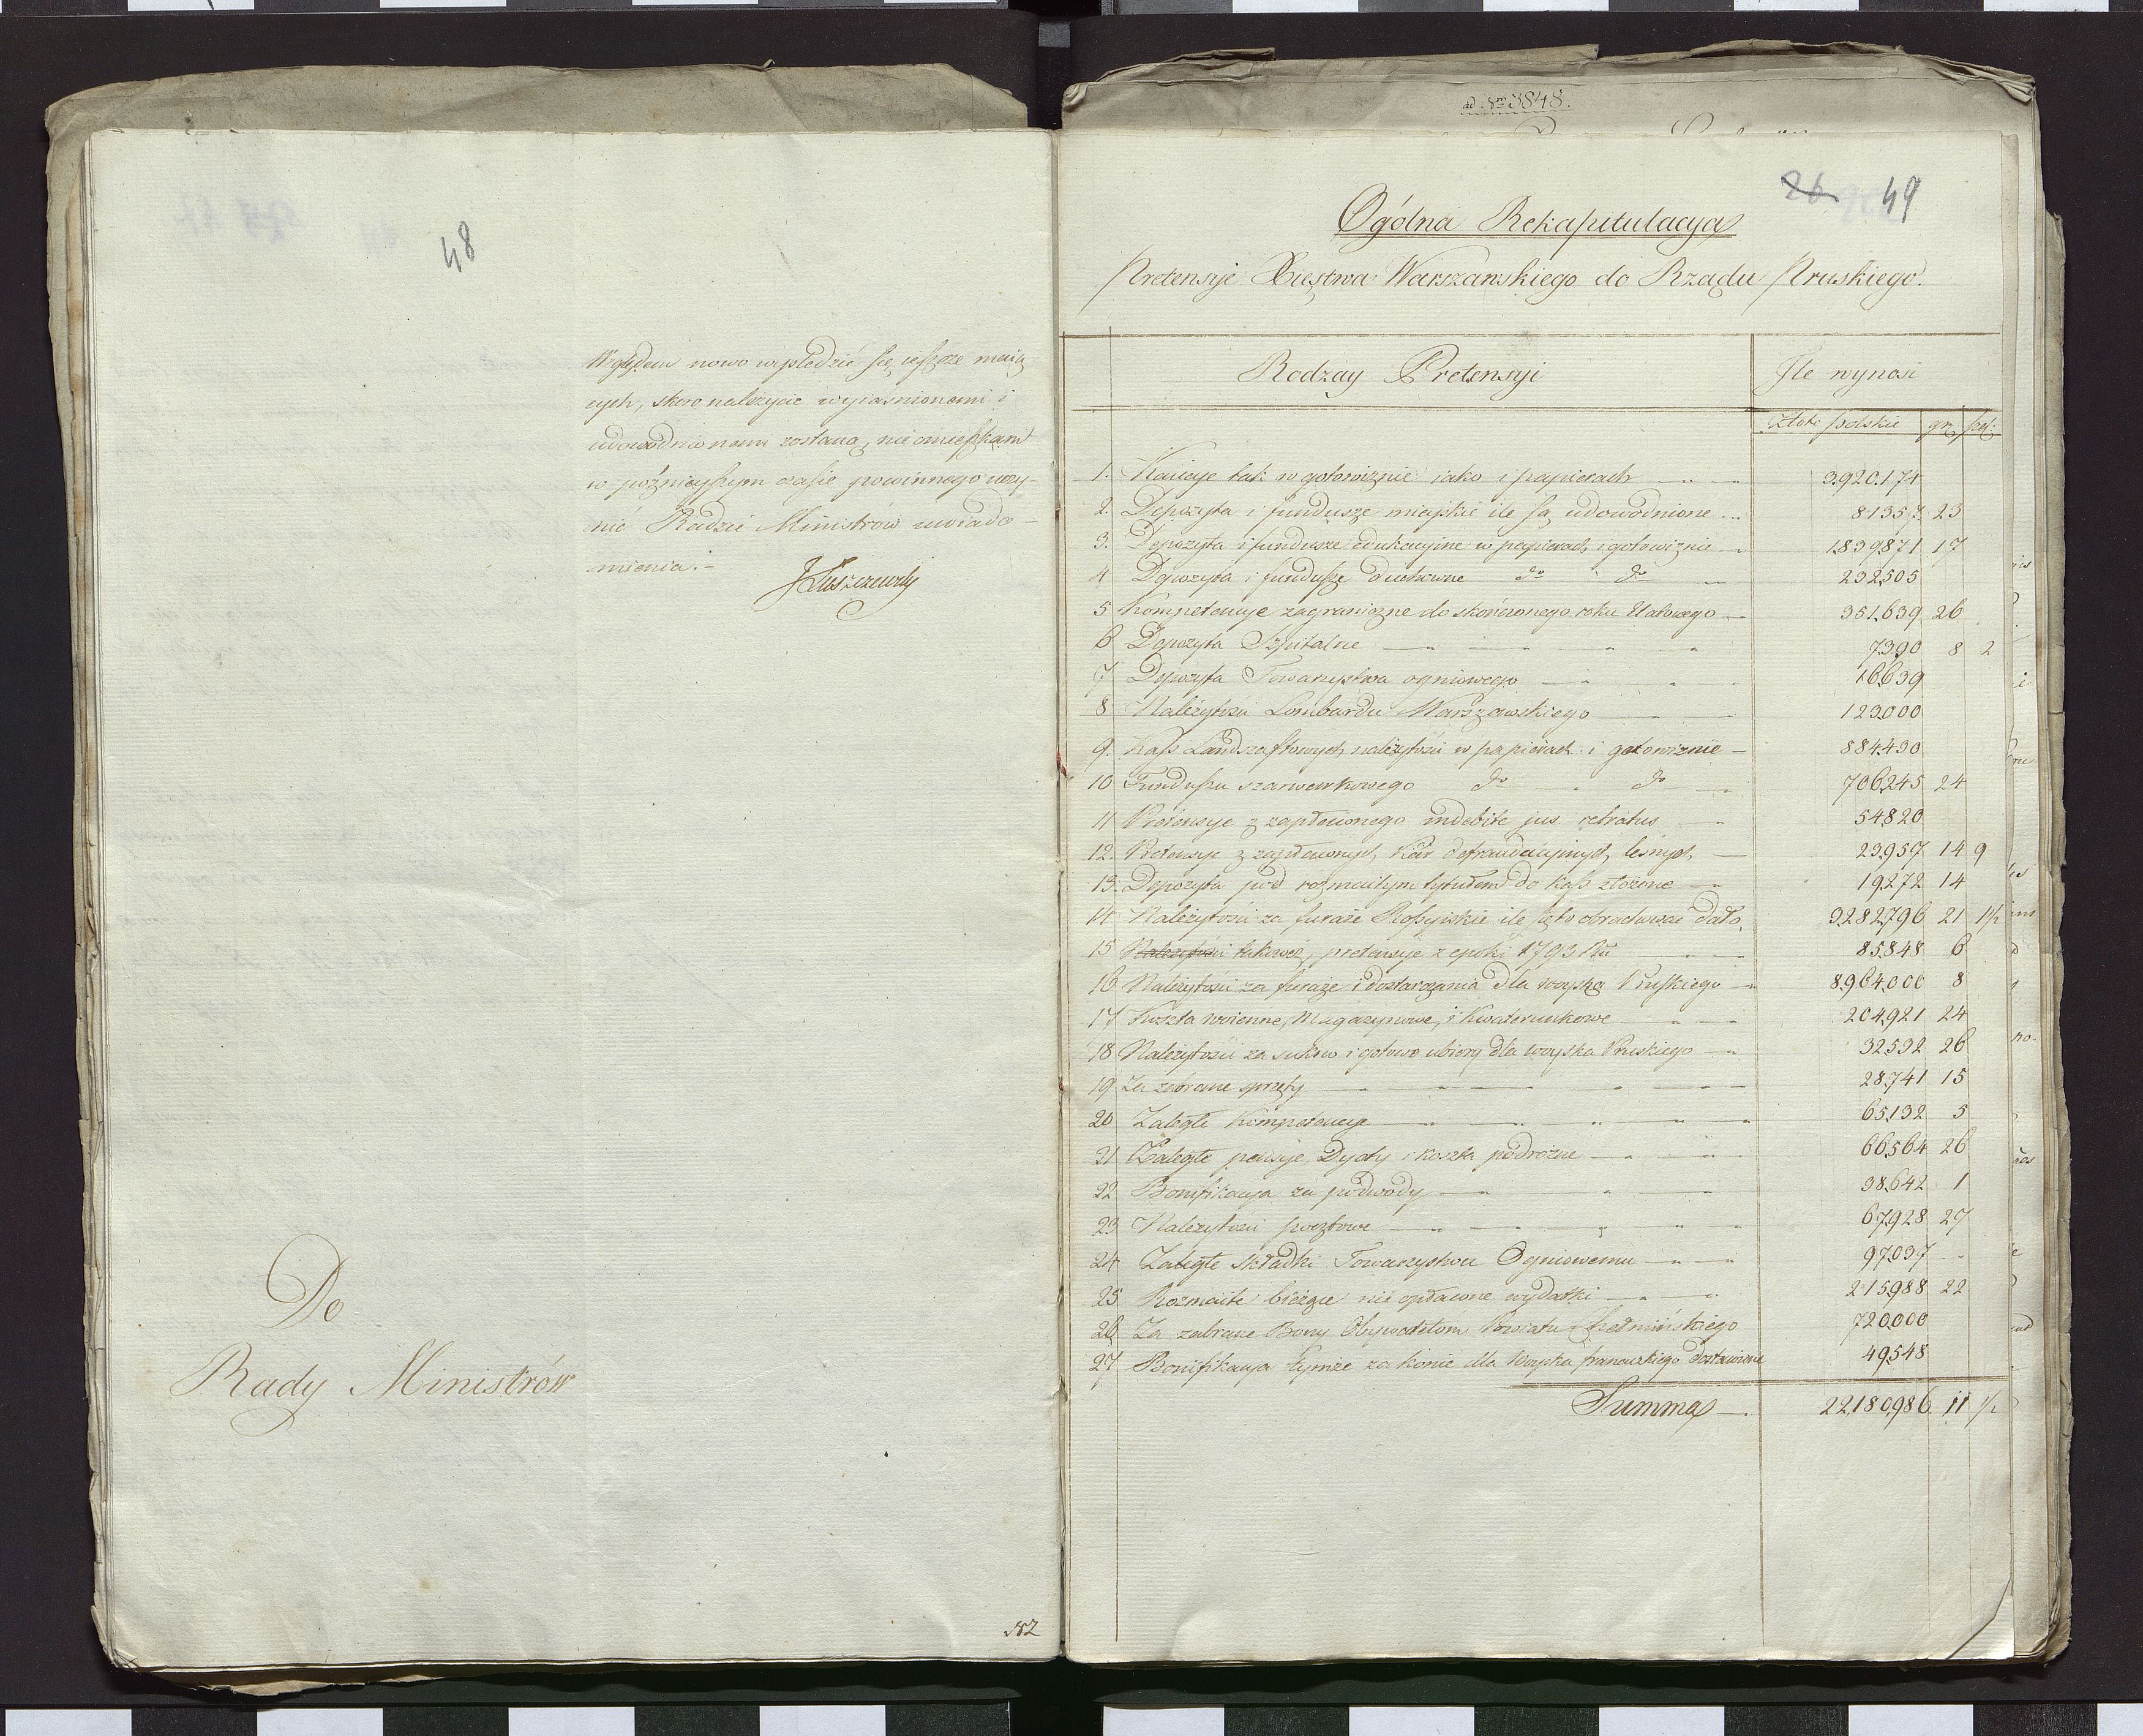 48
Względem nowo wyśledzić się jeszcze maią-
cych, skoro należycie wyiaśnionemi i
udowodnionemi zostaną, nie omieszkam
w poźnieyszym czasie powinnego uczy-
nić Radzie Ministrów uwiado-
mienia.-
JŁuszczewski
Do
Rady Ministrów
ad Nrm 3848.
26 49
Ogólna Rekapitulacya
Pretensyi Xięstwa Warszawskiego do Rządu Pruskiego.
Rodzay Pretensyi Ile wynosi
Złote polskie gr. fen.
1. Kaucye tak w gotowiznie iako i papierach 3,920,174
2. Depozyta i fundusze mieyskie ile są udowodnione 81357 23
3. Depozyta i fundusze edukacyine w papierach i gotowiznie 1,839,871 17
4 Depozyta i fundusze duchowne do do 232,505
5 Kompetencye zagraniczne do skończonego roku Etatowego 351,639 26
6 Depozyta Szpitalne 7390 8 2
7 Depozyta Towarzystwa ogniowego 16639
8 Należytości Lombardu Warszawskiego 123000
9. Kass Landszaftowych należytości w papierach i gotowiznie 884,430
10 Funduszu szarwarkowego do do 706,245 24
11 Pretensye z zapłaconego indebite jus retratus 54820
12. Pretensye z zapłaconych Kar defraudacyinych leśnych 23957 14 9
13. Depozyta pod rozmaitym tytułem do kass złożone 19272 14
14 Należytości za furaże Rossyiskie ile się to obrachować dało. 3,282,796 21 1½
15 Należytości takoweż pretensye z epoki 1793 Ru 85848 6
16 Należytości za furaże i dostarczania dla woyska Pruskiego 8,964,000 8
17 Kuszta woienne, Magazynowe, i Kwaterunkowe 204,921 24
18 Należytości za sukno i gotowe ubiory dla woyska Pruskiego 32532 26
19 Za zabrane sprzęty 28741 15
20 Zaległe Kompetencye 65132 5
21 Zaległe pensye, Dyety i koszta podróżne 66564 26
22 Bonifikacya za podwody 38642 1
23 Należytości pocztowe 67928 27
24 Zaległe składki Towarzystwu Ogniowemu 97037
25 Rozmaite bieżące nie opłacone wydatki 215988 22
26 Za zabrane Bony Obywatelom Powiatu Chełmińskiego 720000
27 Bonifikacya tymże za konie dla Woyska francuskiego dostawione 49548
Summa 22,180,986 11 ½